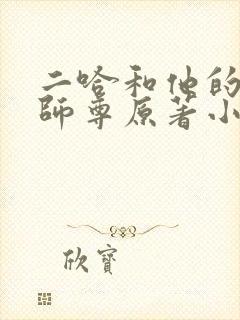 二哈和他的
師尊原著小
欣寶